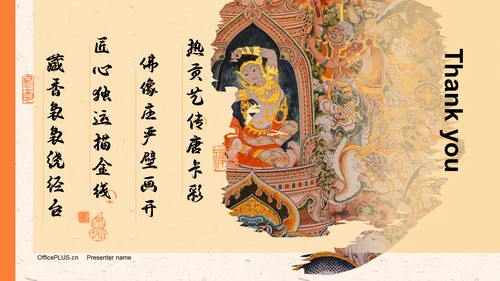 热贡艺传唐卡彩
佛像庄严壁画开
匠心独运描金线
藏香袅袅绕经台
Thank you
OfficePLUS.cn
Presenter name